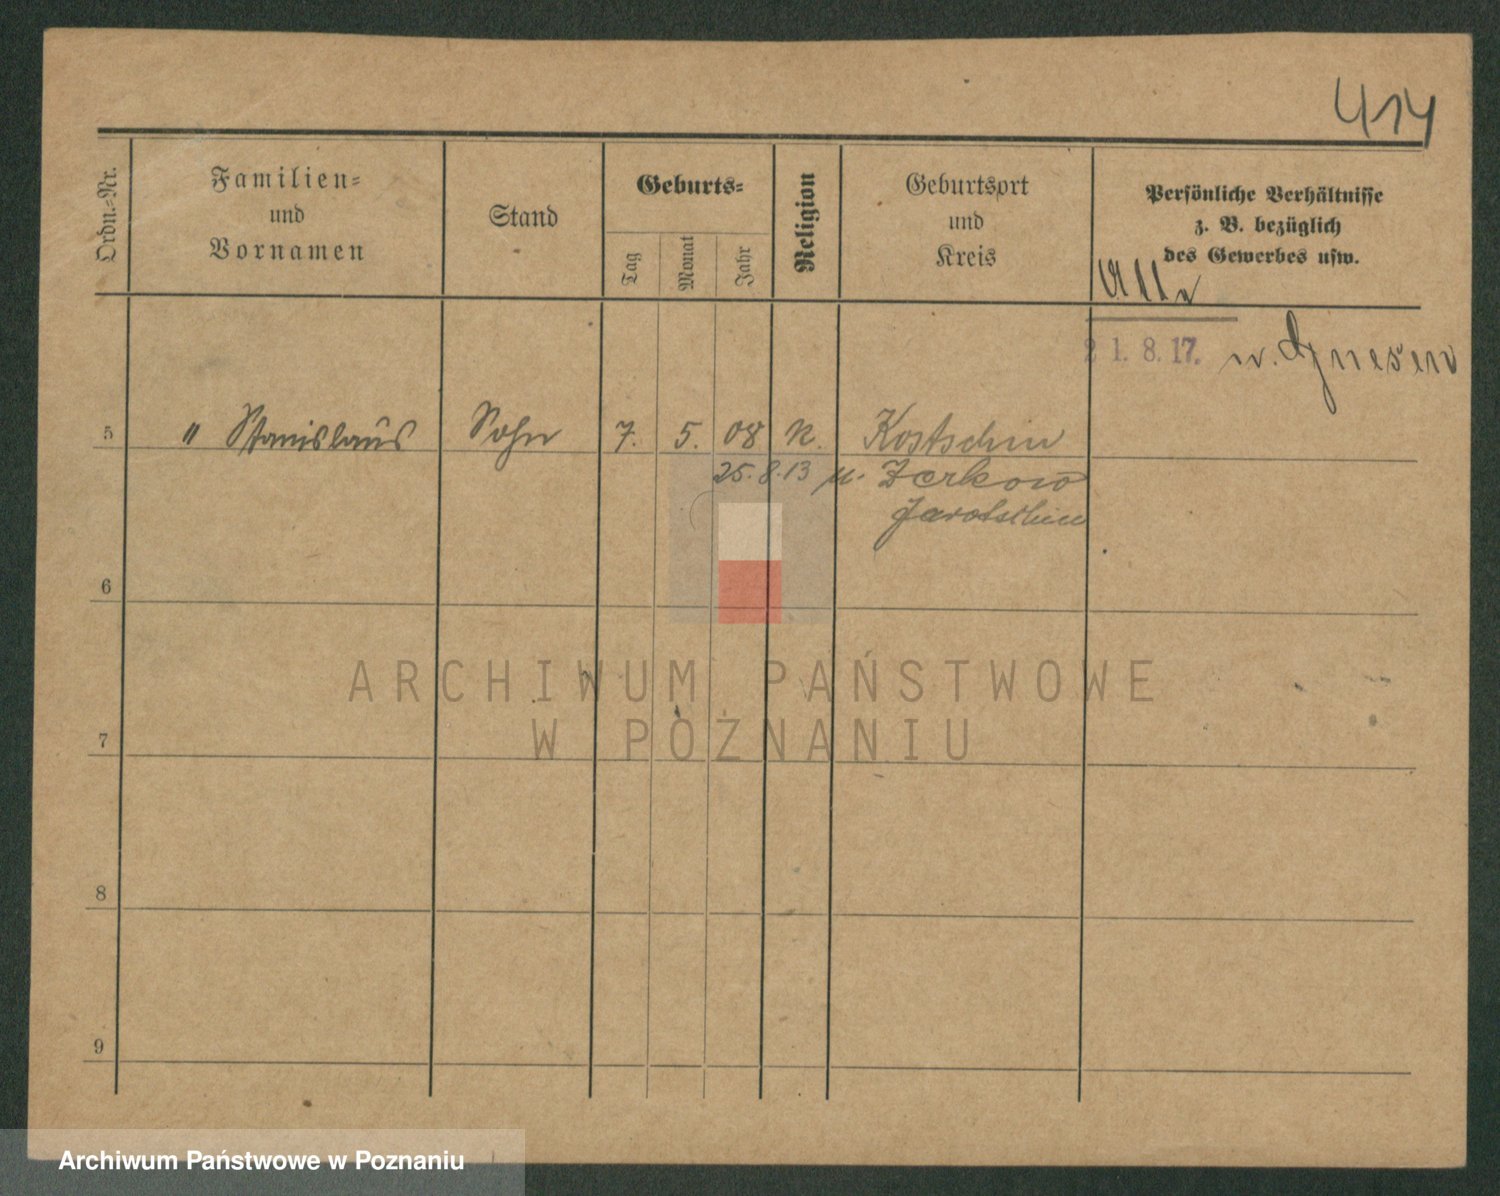 414
Ordn.-Nr.
Familien-
und
Vornamen
Stand
Geburts-
Tag
Monat
Jahr
Religion
Geburtsort
und
Kreis
Persönliche Verhältnisse
z. B. bezüglich
des Gewerbes usw.
Alle
21. 8. 17. n. Gnesen
5 " Stanislaus Sohn 7. 5. 08 K. Kostschin
25.8.13 n. Zerkow
Jarotschin
6
ARCHIWUM PAŃSTWOWE
W POZNANIU
7
8
9
Archiwum Państwowe w Poznaniu